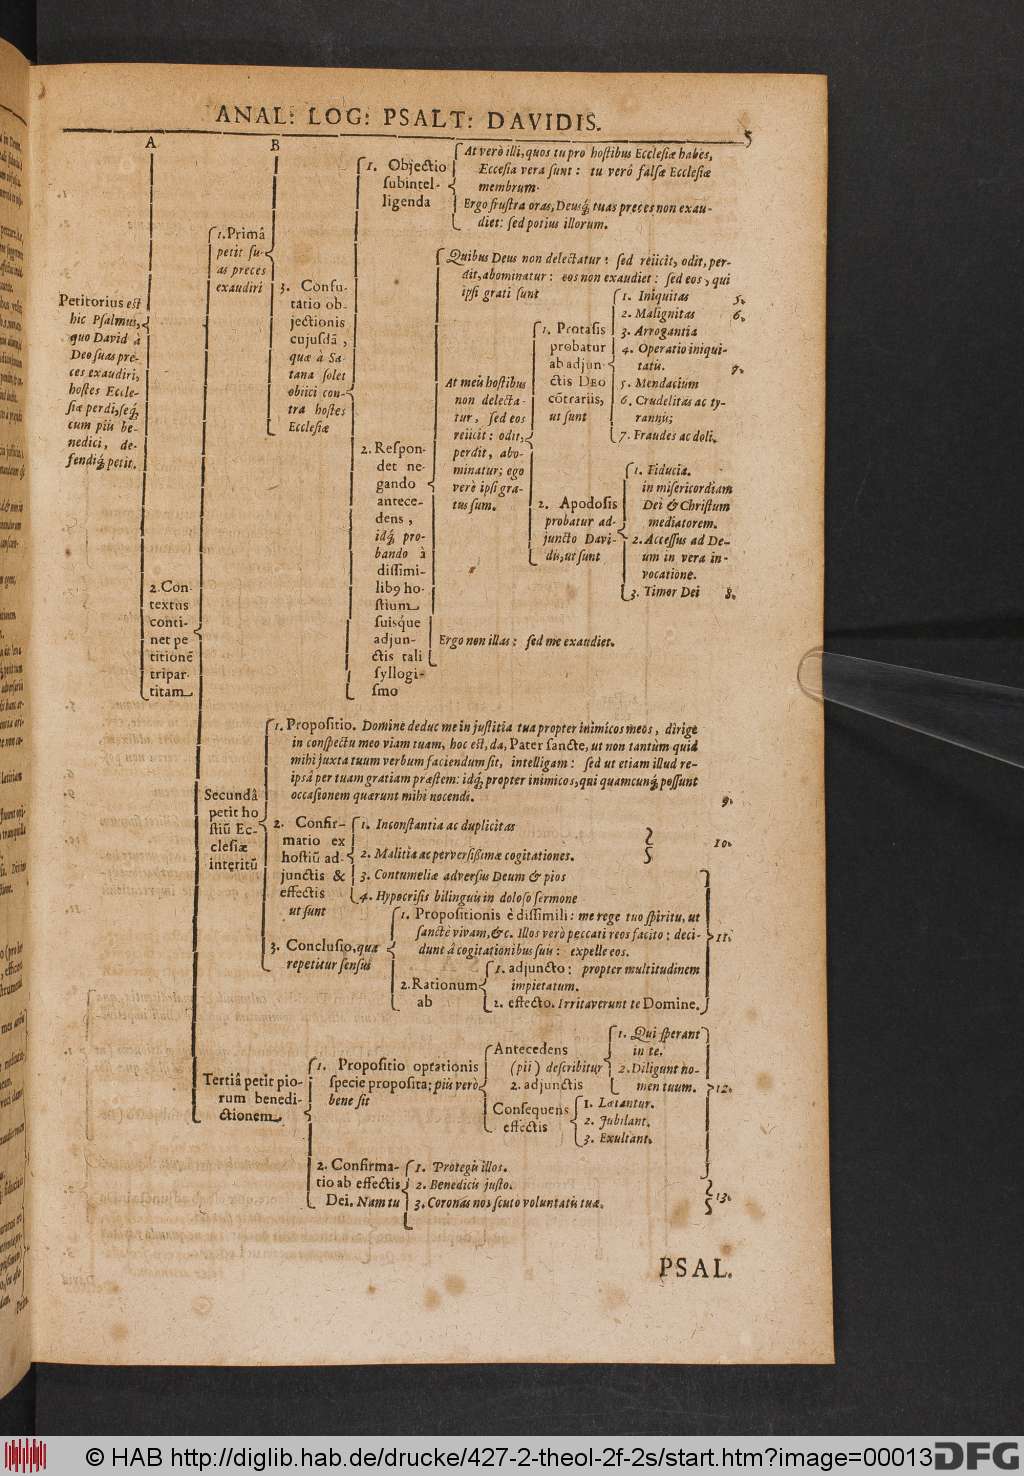 ANAL: LOG: PSALT: DAVIDIS.
5
A
B
Petitorius est
hic Psalmus,
quo David à
Deo suas pre-
ces exaudiri,
hostes Eccle-
siæ perdi, seq́;
cum piis be-
nedici, de-
fendiq́; petit.
2. Con-
textus
conti-
net pe
titionẽ
tripar-
titam
1. Primâ
petit su-
as preces
exaudiri
3. Confu-
tatio ob-
jectionis
cujusdã,
quæ à Sa-
tana solet
obiici con-
tra hostes
Ecclesiæ
1. Objectio
subintel-
ligenda
At verò illi, quos tu pro hostibus Ecclesiæ habes,
Eccesia vera sunt: tu verô falsæ Ecclesiæ
membrum.
Ergo frustra oras, Deusq́; tuas preces non exau-
diet: sed potius illorum.
2. Respon-
det ne-
gando
antece-
dens,
idq́; pro-
bando à
dissimi-
libꝰ ho-
stium
suisque
adjun-
ctis tali
syllogi-
smo
Quibus Deus non delectatur: sed reiicit, odit, per-
dit, abominatur: eos non exaudiet: sed eos, qui
ipsi grati sunt
At meis hostibus
non delecta-
tur, sed eos
reiicit: odit,
perdit, abo-
minatur; ego
verò ipsi gra-
tus sum.
1. Protasis
probatur
ab adjun-
ctis DEO
cõtrariis,
ut sunt
1. Iniquitas 5.
2. Malignitas 6.
3. Arrogantia
4. Operatio iniqui-
tatis. 7.
5. Mendacium
6. Crudelitas ac ty-
rannis;
7. Fraudes ac doli.
2. Apodosis
probatur ad-
juncto Davi-
dis, ut sunt
1. Fiducia.
in misericordiam
Dei & Christum
mediatorem.
2. Accessus ad De-
um in vera in-
vocatione.
3. Timor Dei 8.
Ergo non illas: sed me exaudiet.
Secundâ
petit ho
stiũ Ec-
clesiæ
interitũ
1. Propositio. Domine deduc me in justitia tua propter inimicos meos, dirige
in conspectu meo viam tuam, hoc est, da, Pater sancte, ut non tantùm quid
mihi juxta tuum verbum faciendum sit, intelligam: sed ut etiam illud re-
ipsâ per tuam gratiam præstem: idq́; propter inimicos, qui quamcunq́; possunt
occasionem quærunt mihi nocendi. 9.
2. Confir-
matio ex
hostiũ ad-
junctis &
effectis
ut sunt
1. Inconstantia ac duplicitas
2. Malitia ac perversissimæ cogitationes. 10.
3. Contumeliæ adversus Deum & pios
4. Hypocrisis bilinguis in doloso sermone
3. Conclusio, quæ
repetitur sensus
1. Propositionis è dissimili: me rege tuo spiritu, ut
sanctè vivam, &c. Illos verò peccati reos facito: deci-
dunt â cogitationibus suis: expelle eos.
11.
2. Rationum
ab
1. adjuncto: propter multitudinem
impietatum.
2. effecto. Irritaverunt te Domine.
Tertiâ petit pio-
rum benedi-
ctionem
1. Propositio optationis
specie proposita; piis verò
bene sit
Antecedens
(pii) describitur
2. adjunctis
1. Qui sperant
in te.
2. Diligunt no-
men tuum. 12.
Consequens
effectis
1. Lætantur.
2. Jubilant.
3. Exultant.
2. Confirma-
tio ab effectis
Dei. Nam tu
1. Protegis illos.
2. Benedicis justo.
3. Coronas nos scuto voluntatis tuæ.
13.
PSAL.
© HAB http://diglib.hab.de/drucke/427-2-theol-2f-2s/start.htm?image=00013
DFG